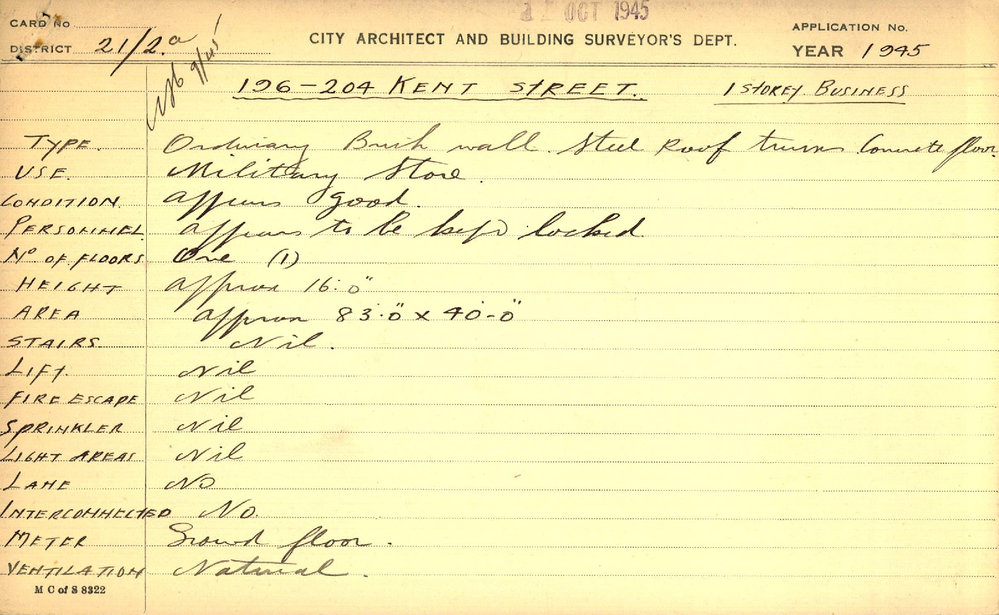 OCT 1945
CARD No
APPLICATION No.
DISTRICT 21/2a
CITY ARCHITECT AND BUILDING SURVEYOR'S DEPT.
YEAR 1945
9/45
196-204 KENT STREET. 1 STOREY BUSINESS
TYPE. Ordinary Brick wall. Steel Roof truss. Concrete floor.
USE. Military Store.
CONDITION. appears good.
PERSONNEL. appears to be kept locked
No OF FLOORS One (1)
HEIGHT approx 16'.0"
AREA approx 83'.0" x 40'-0"
STAIRS. Nil.
LIFT. Nil
FIRE ESCAPE Nil
SPRINKLER Nil
LIGHT AREAS Nil
LANE NO
INTERCONNECTED No.
METER Ground floor.
VENTILATION Natural.
M C of S 8322